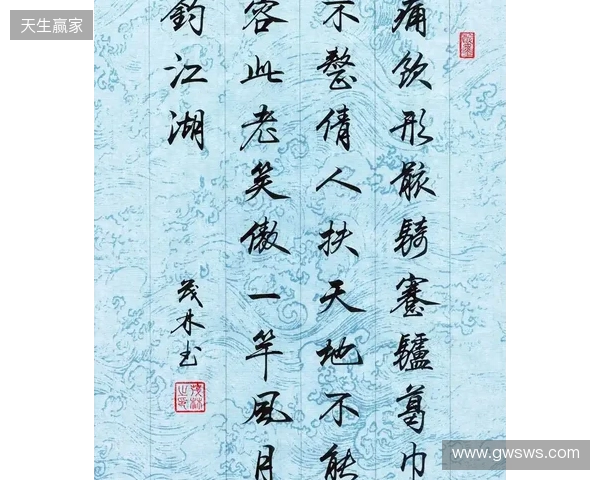 天生赢家
痛飲形骸騎蹇驢葛巾
不整倩人扶天地不能
容此老笑傲一竿風月
釣江湖
茂林书
www.gwsws.com